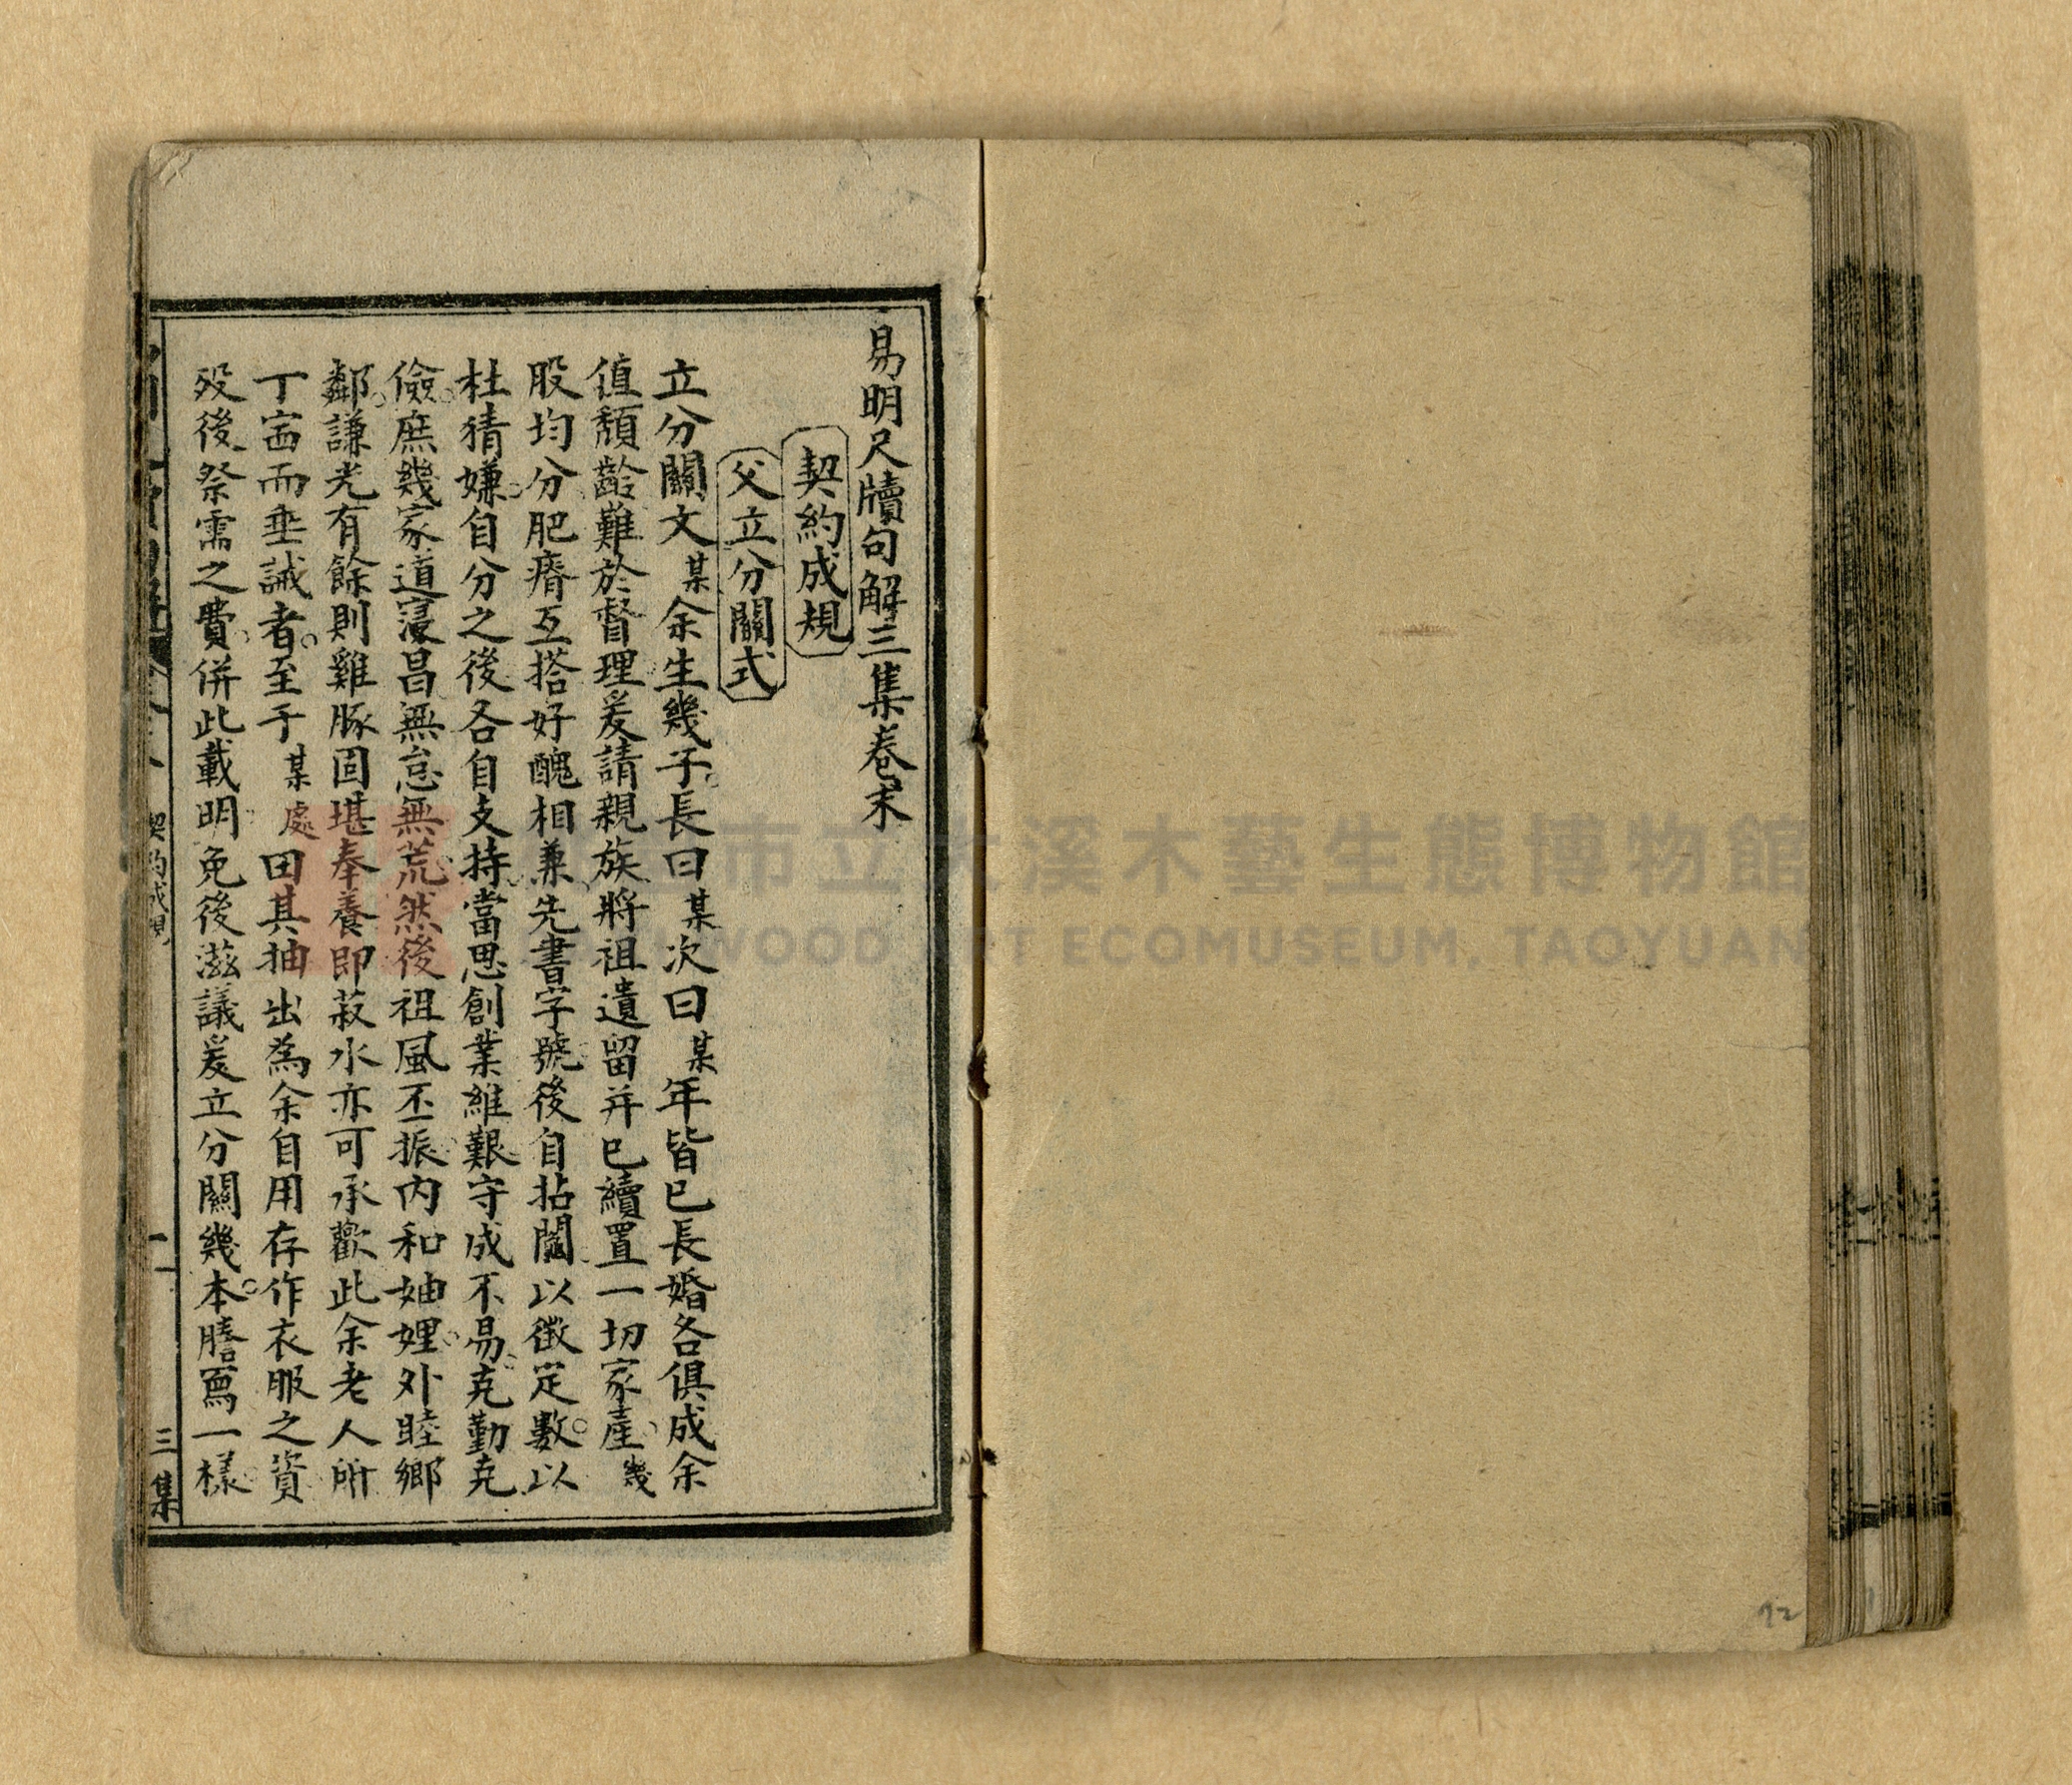 易明尺牘句解三集卷末
契約成規
父立分關式
立分關文某余生幾子長曰某次曰某年皆已長婚各俱成余
值頹齡難於督理爰請親族將祖遺留并已續置一切家產幾
股均分肥瘠互搭好醜相兼先書字號後自拈鬮以徵定數以
杜猜嫌自分之後各自支持當思創業維艱守成不易克勤克
儉庶幾家道寖昌無怠無荒然後祖風丕振內和妯娌外睦鄉
鄰謙光有餘則雞豚固堪奉養即菽水亦可承歡此余老人所
丁寧而垂誡者至于某處田其抽出為余自用存作衣服之資
殁後祭需之費併此載明免後滋議爰立分關幾本謄寫一樣
契約成規
一
三集
市立大溪木藝生態博物館
WOOD ART ECOMUSEUM, TAOYUAN